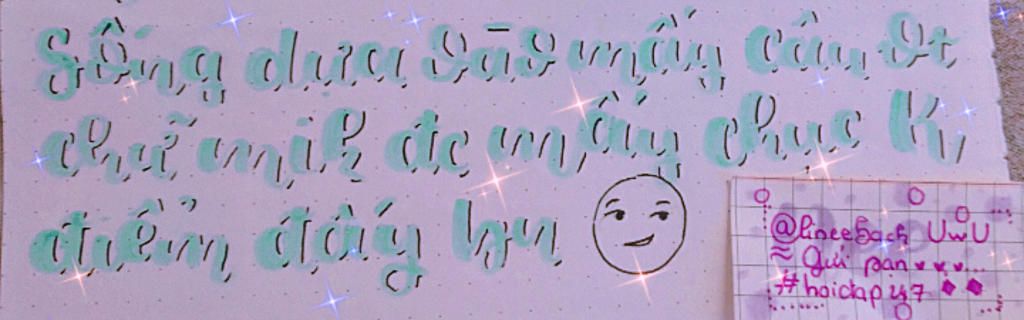 Sống dựa vào mấy câu vt
chữ mik đc mấy chục K,
điểm đấy bn
@linceSach UwU
≈ Gửi pan
#hoidap247